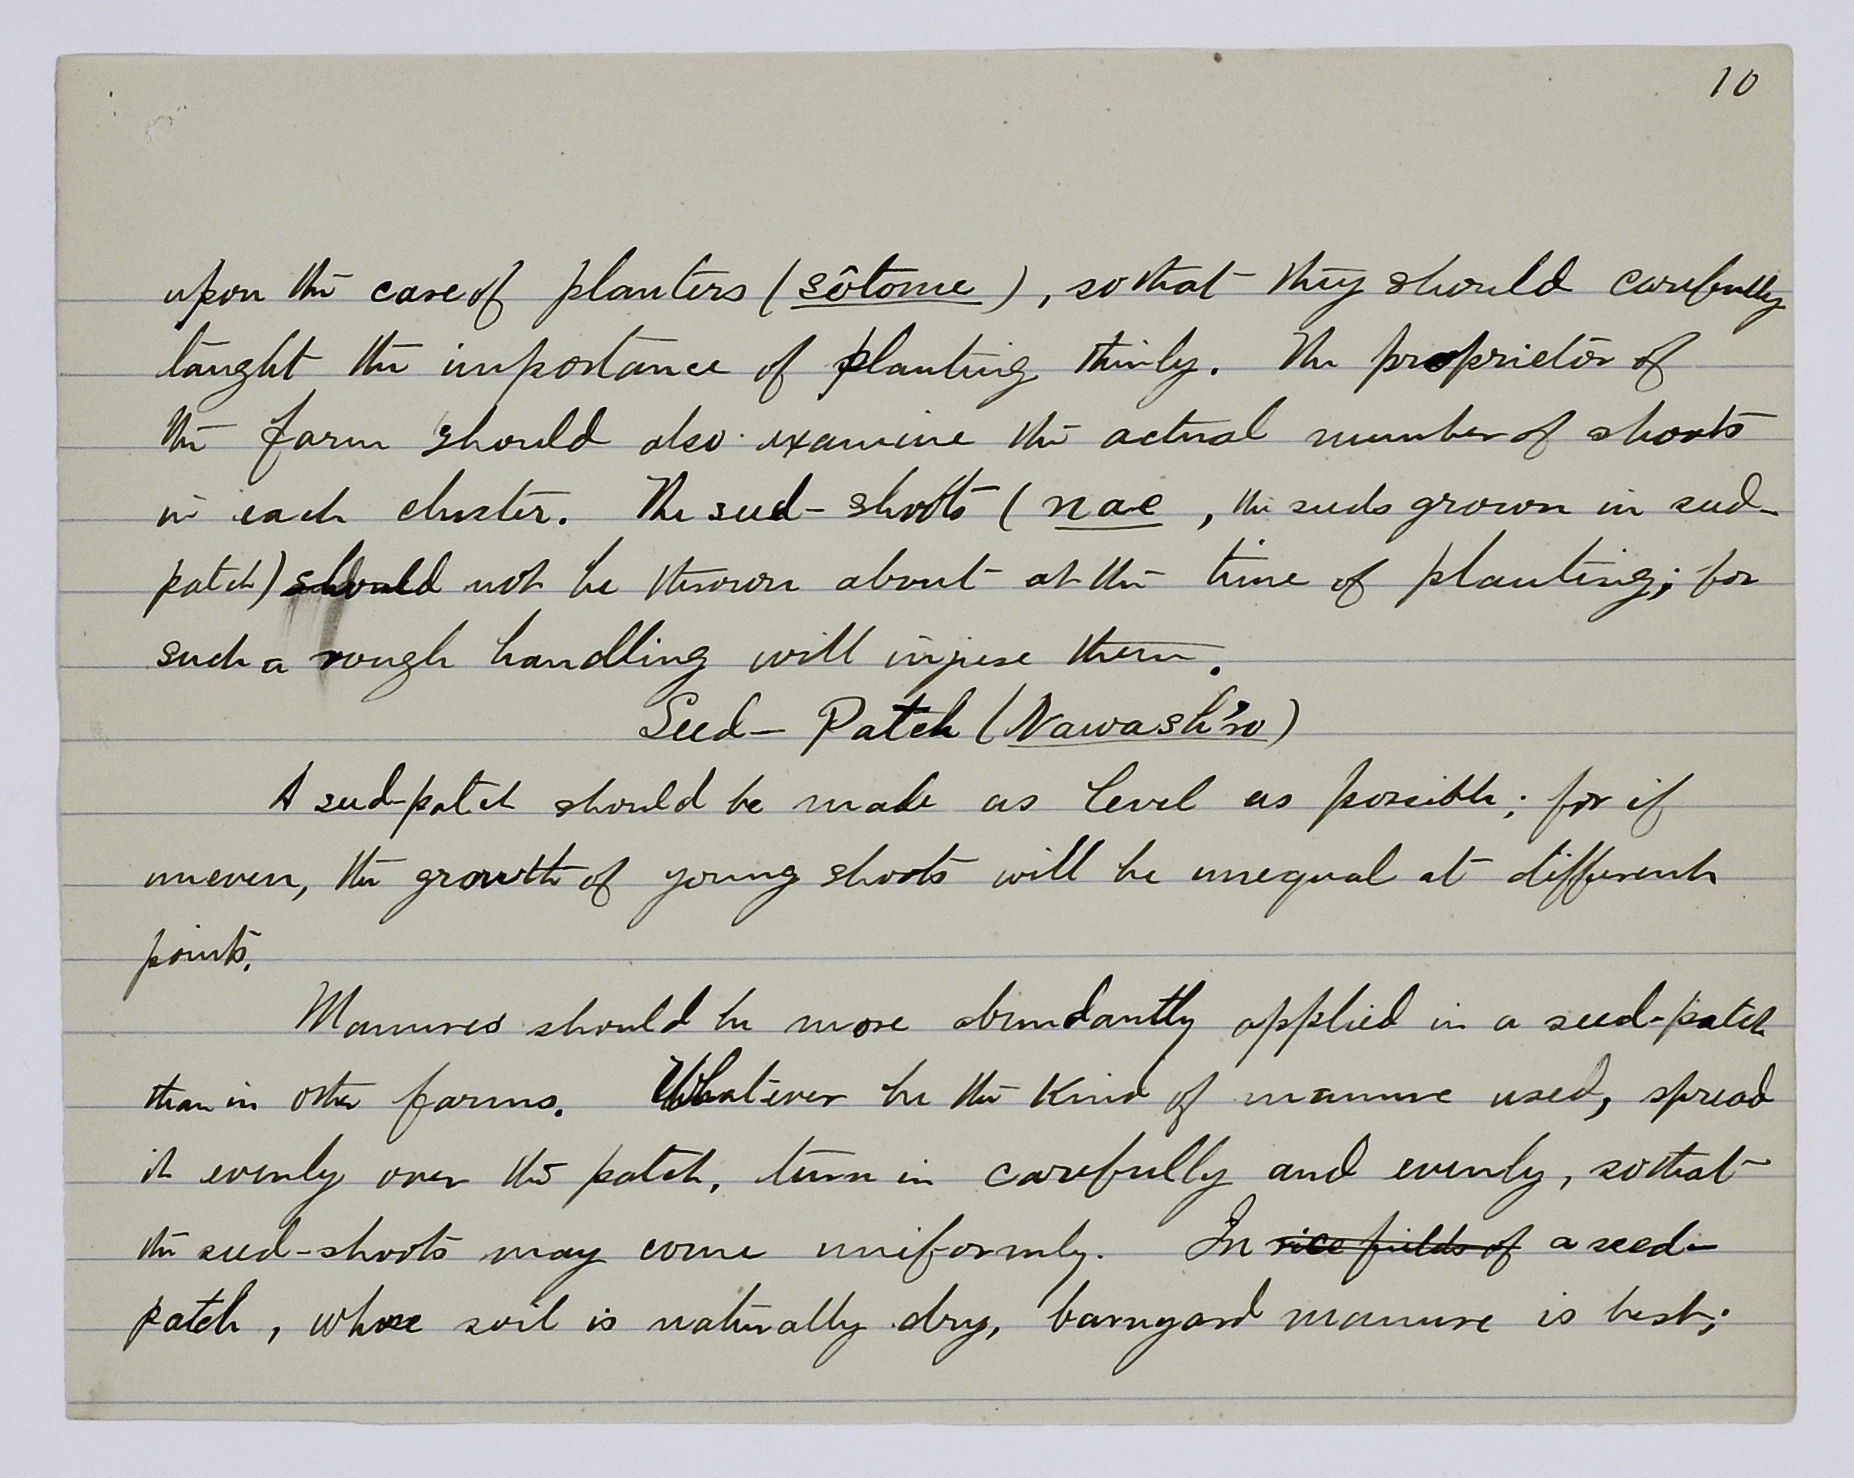 10
upon the care of planters (sôtome), so that they should carefully
taught the importance of planting thinly. The proprietor of
the farm should also examine the actual number of shoots
in each cluster. The seed-shoots (nae, the seeds grown in seed-
patch) should not be thrown about at the time of planting; for
such a rough handling will injure them.
Seed-Patch (Nawash'ro)
A seed-patch should be made as level as possible; for if
uneven, the growth of young shoots will be unequal at different
points.
Manures should be more abundantly applied in a seed-patch
than in other farms. Whatever be the kind of manure used, spread
it evenly over the patch, turn in carefully and evenly, so that
the seed-shoots may come uniformly. In rice fields of a seed-
patch, whose soil is naturally dry, barnyard manure is best;